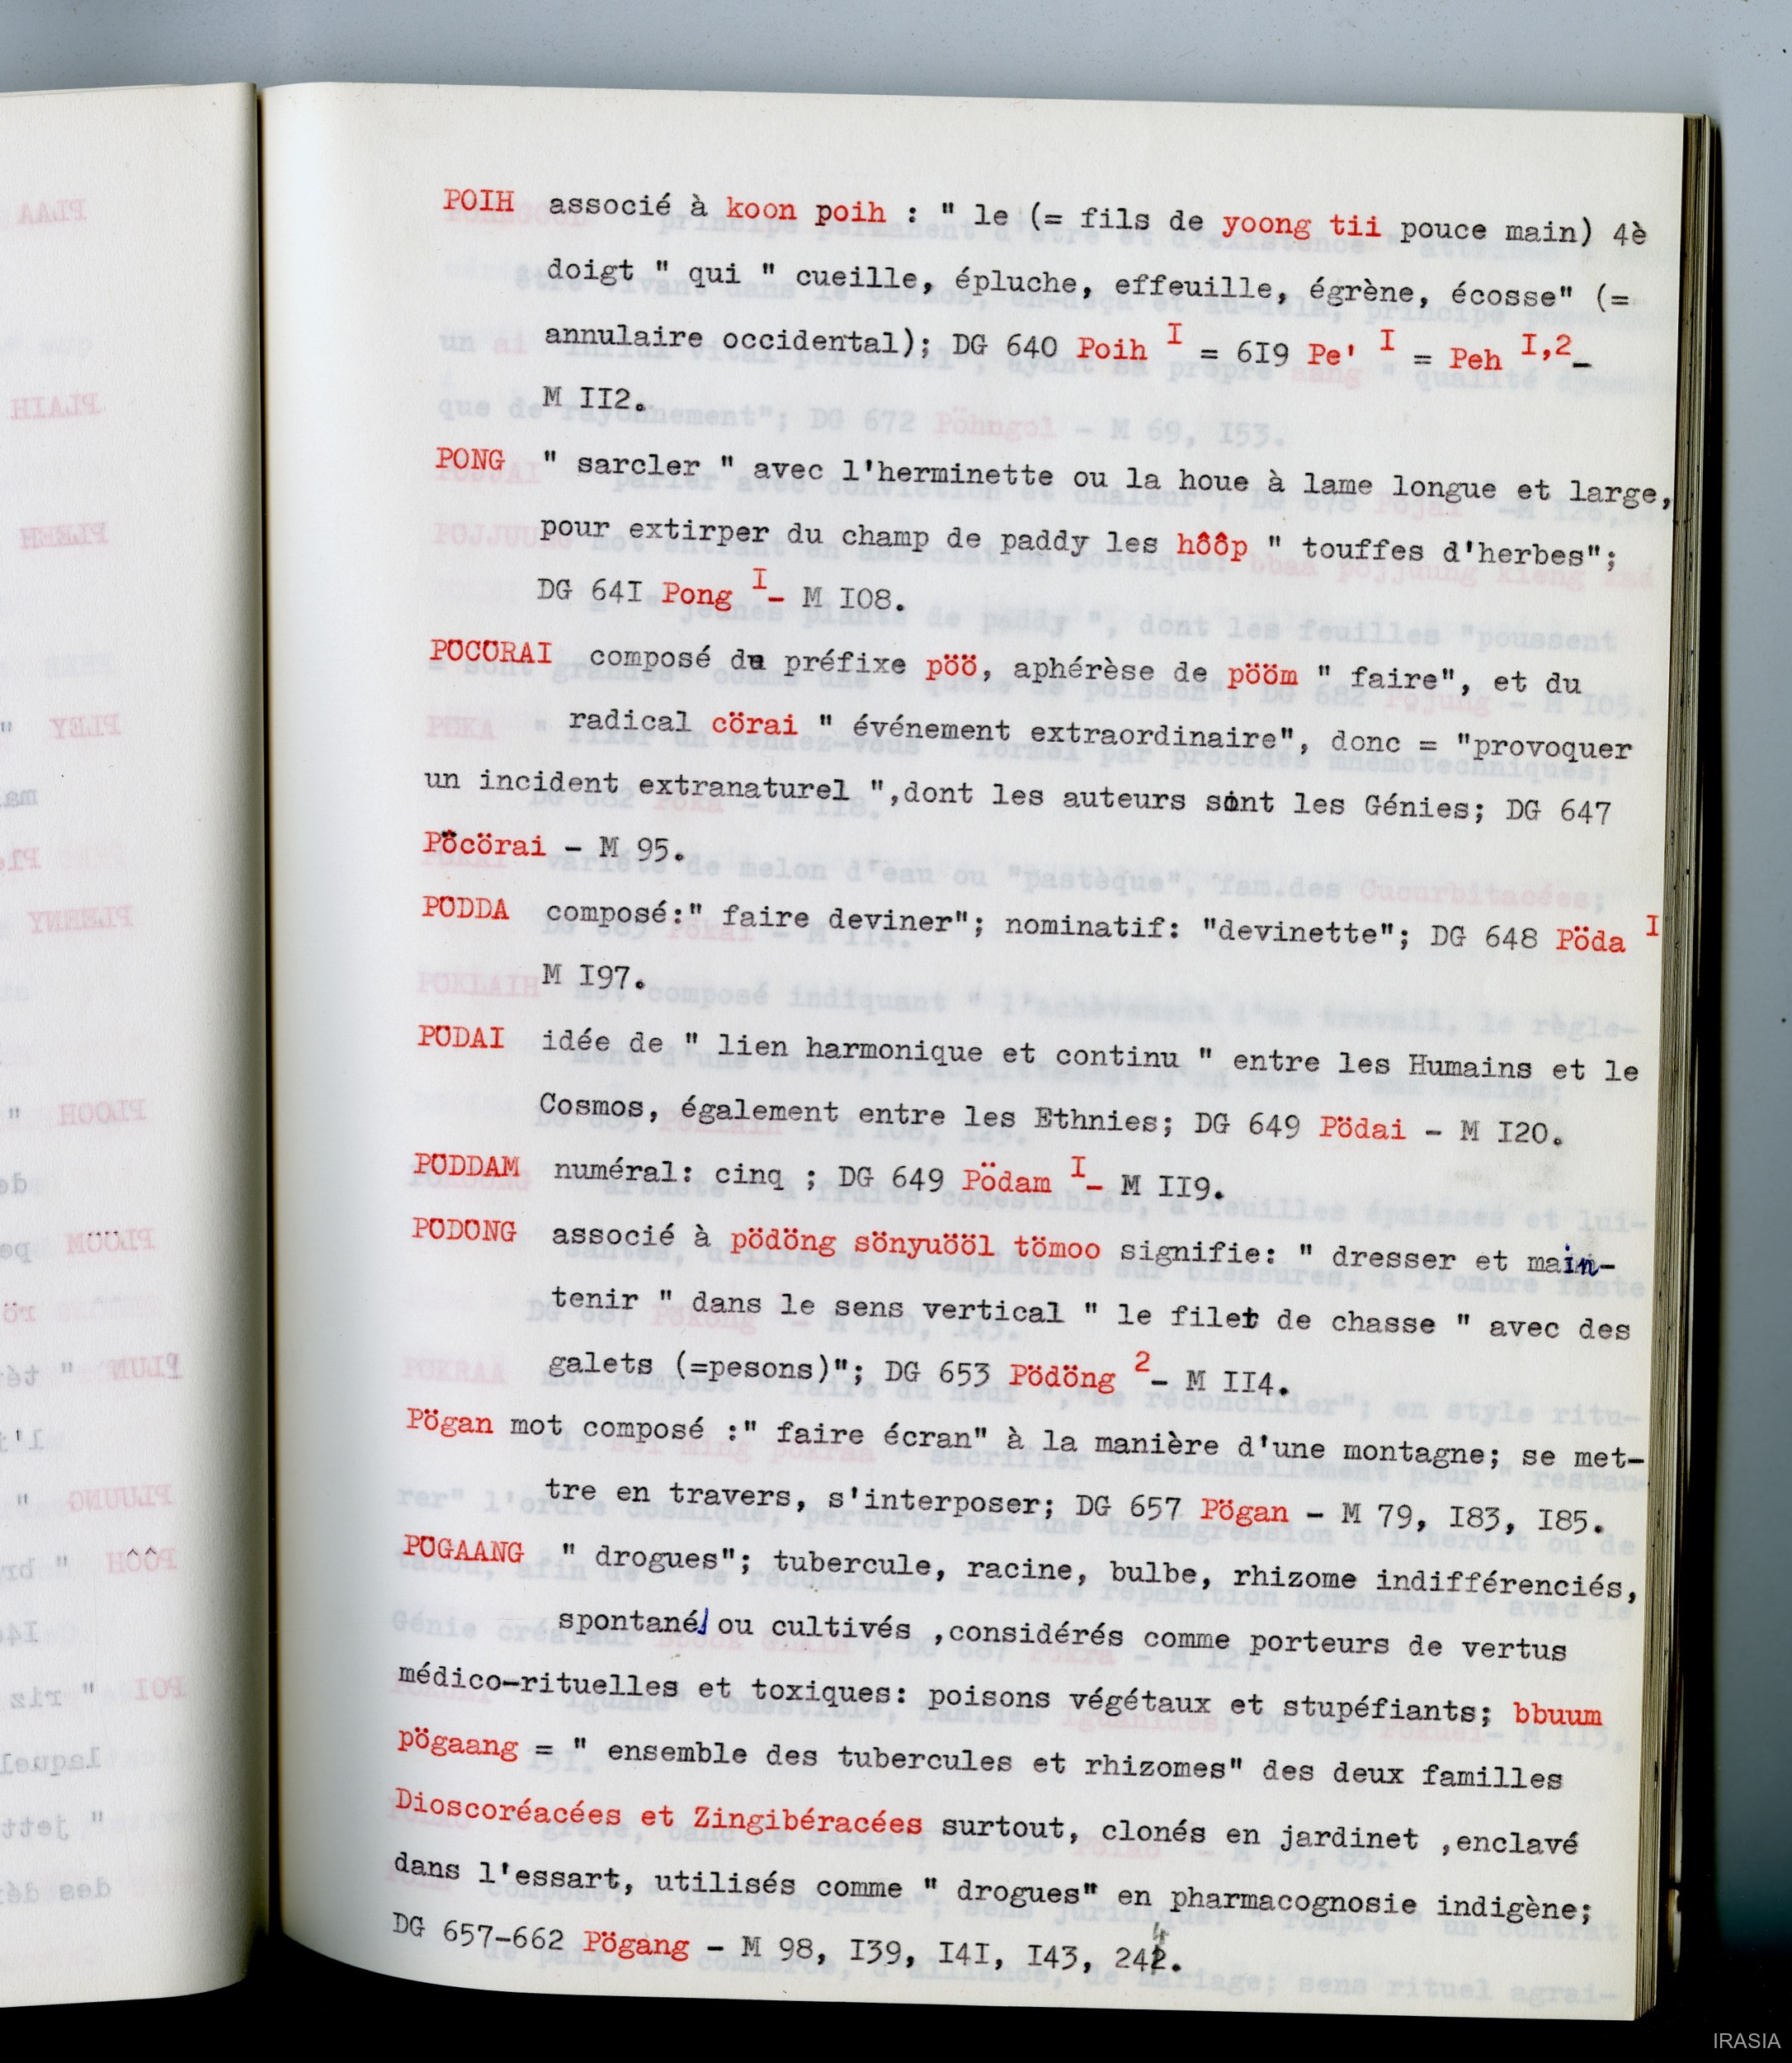 POIH associé à koon poih : " le (= fils de yoong tii pouce main) 4è
doigt " qui " cueille, épluche, effeuille, égrène, écosse" (=
annulaire occidental); DG 640 Poih I = 6I9 Pe' I = Peh I,2_
M II2.
PONG " sarcler " avec l'herminette ou la houe à lame longue et large,
pour extirper du champ de paddy les hôôp " touffes d'herbes";
DG 64I Pong I_ M I08.
PÖCÖRAI composé du préfixe pöö, aphérèse de pööm " faire", et du
radical cörai " événement extraordinaire", donc = "provoquer
un incident extranaturel ",dont les auteurs sont les Génies; DG 647
Pöcörai - M 95.
PÖDDA composé:" faire deviner"; nominatif: "devinette"; DG 648 Pöda I
M I97.
PÖDAI idée de " lien harmonique et continu " entre les Humains et le
Cosmos, également entre les Ethnies; DG 649 Pödai - M I20.
PÖDDAM numéral: cinq ; DG 649 Pödam I_ M II9.
PÖDÖNG associé à pödöng sönyuööl tömoo signifie: " dresser et main-
tenir " dans le sens vertical " le filet de chasse " avec des
galets (=pesons)"; DG 653 Pödöng 2_ M II4.
Pögan mot composé :" faire écran" à la manière d'une montagne; se met-
tre en travers, s'interposer; DG 657 Pögan - M 79, I83, I85.
PÖGAANG " drogues"; tubercule, racine, bulbe, rhizome indifférenciés,
spontanés ou cultivés ,considérés comme porteurs de vertus
médico-rituelles et toxiques: poisons végétaux et stupéfiants; bbuum
pögaang = " ensemble des tubercules et rhizomes" des deux familles
Dioscoréacées et Zingibéracées surtout, clonés en jardinet ,enclavé
dans l'essart, utilisés comme " drogues" en pharmacognosie indigène;
DG 657-662 Pögang - M 98, I39, I4I, I43, 244.
PLAA
PLAIH
PLEEH
PLEY "
PLEENY
PLOOH "
PLÖÖM
PLUN "
PLUUNG "
PÔÔH "
POI " riz
" jett
IRASIA